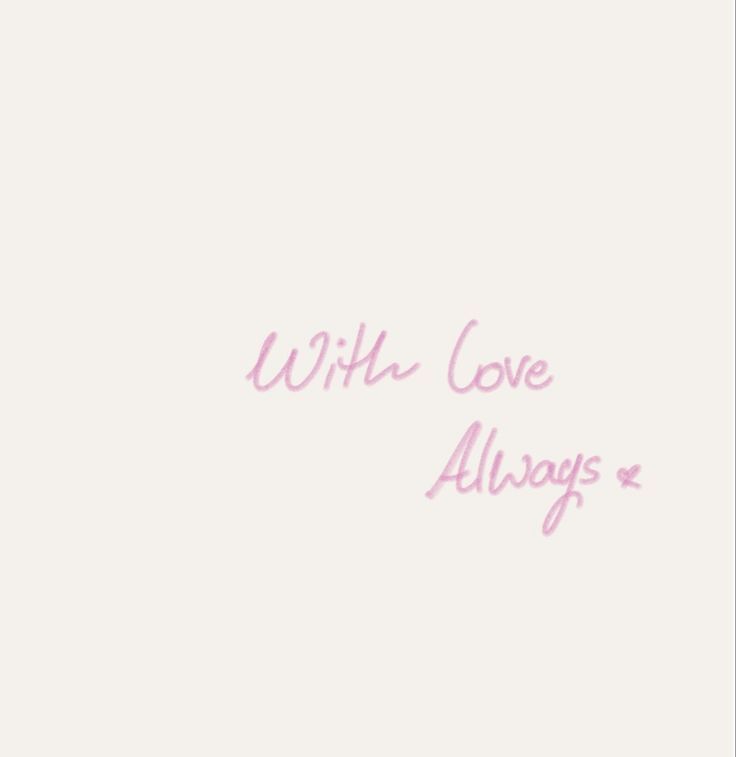 With Love
Always